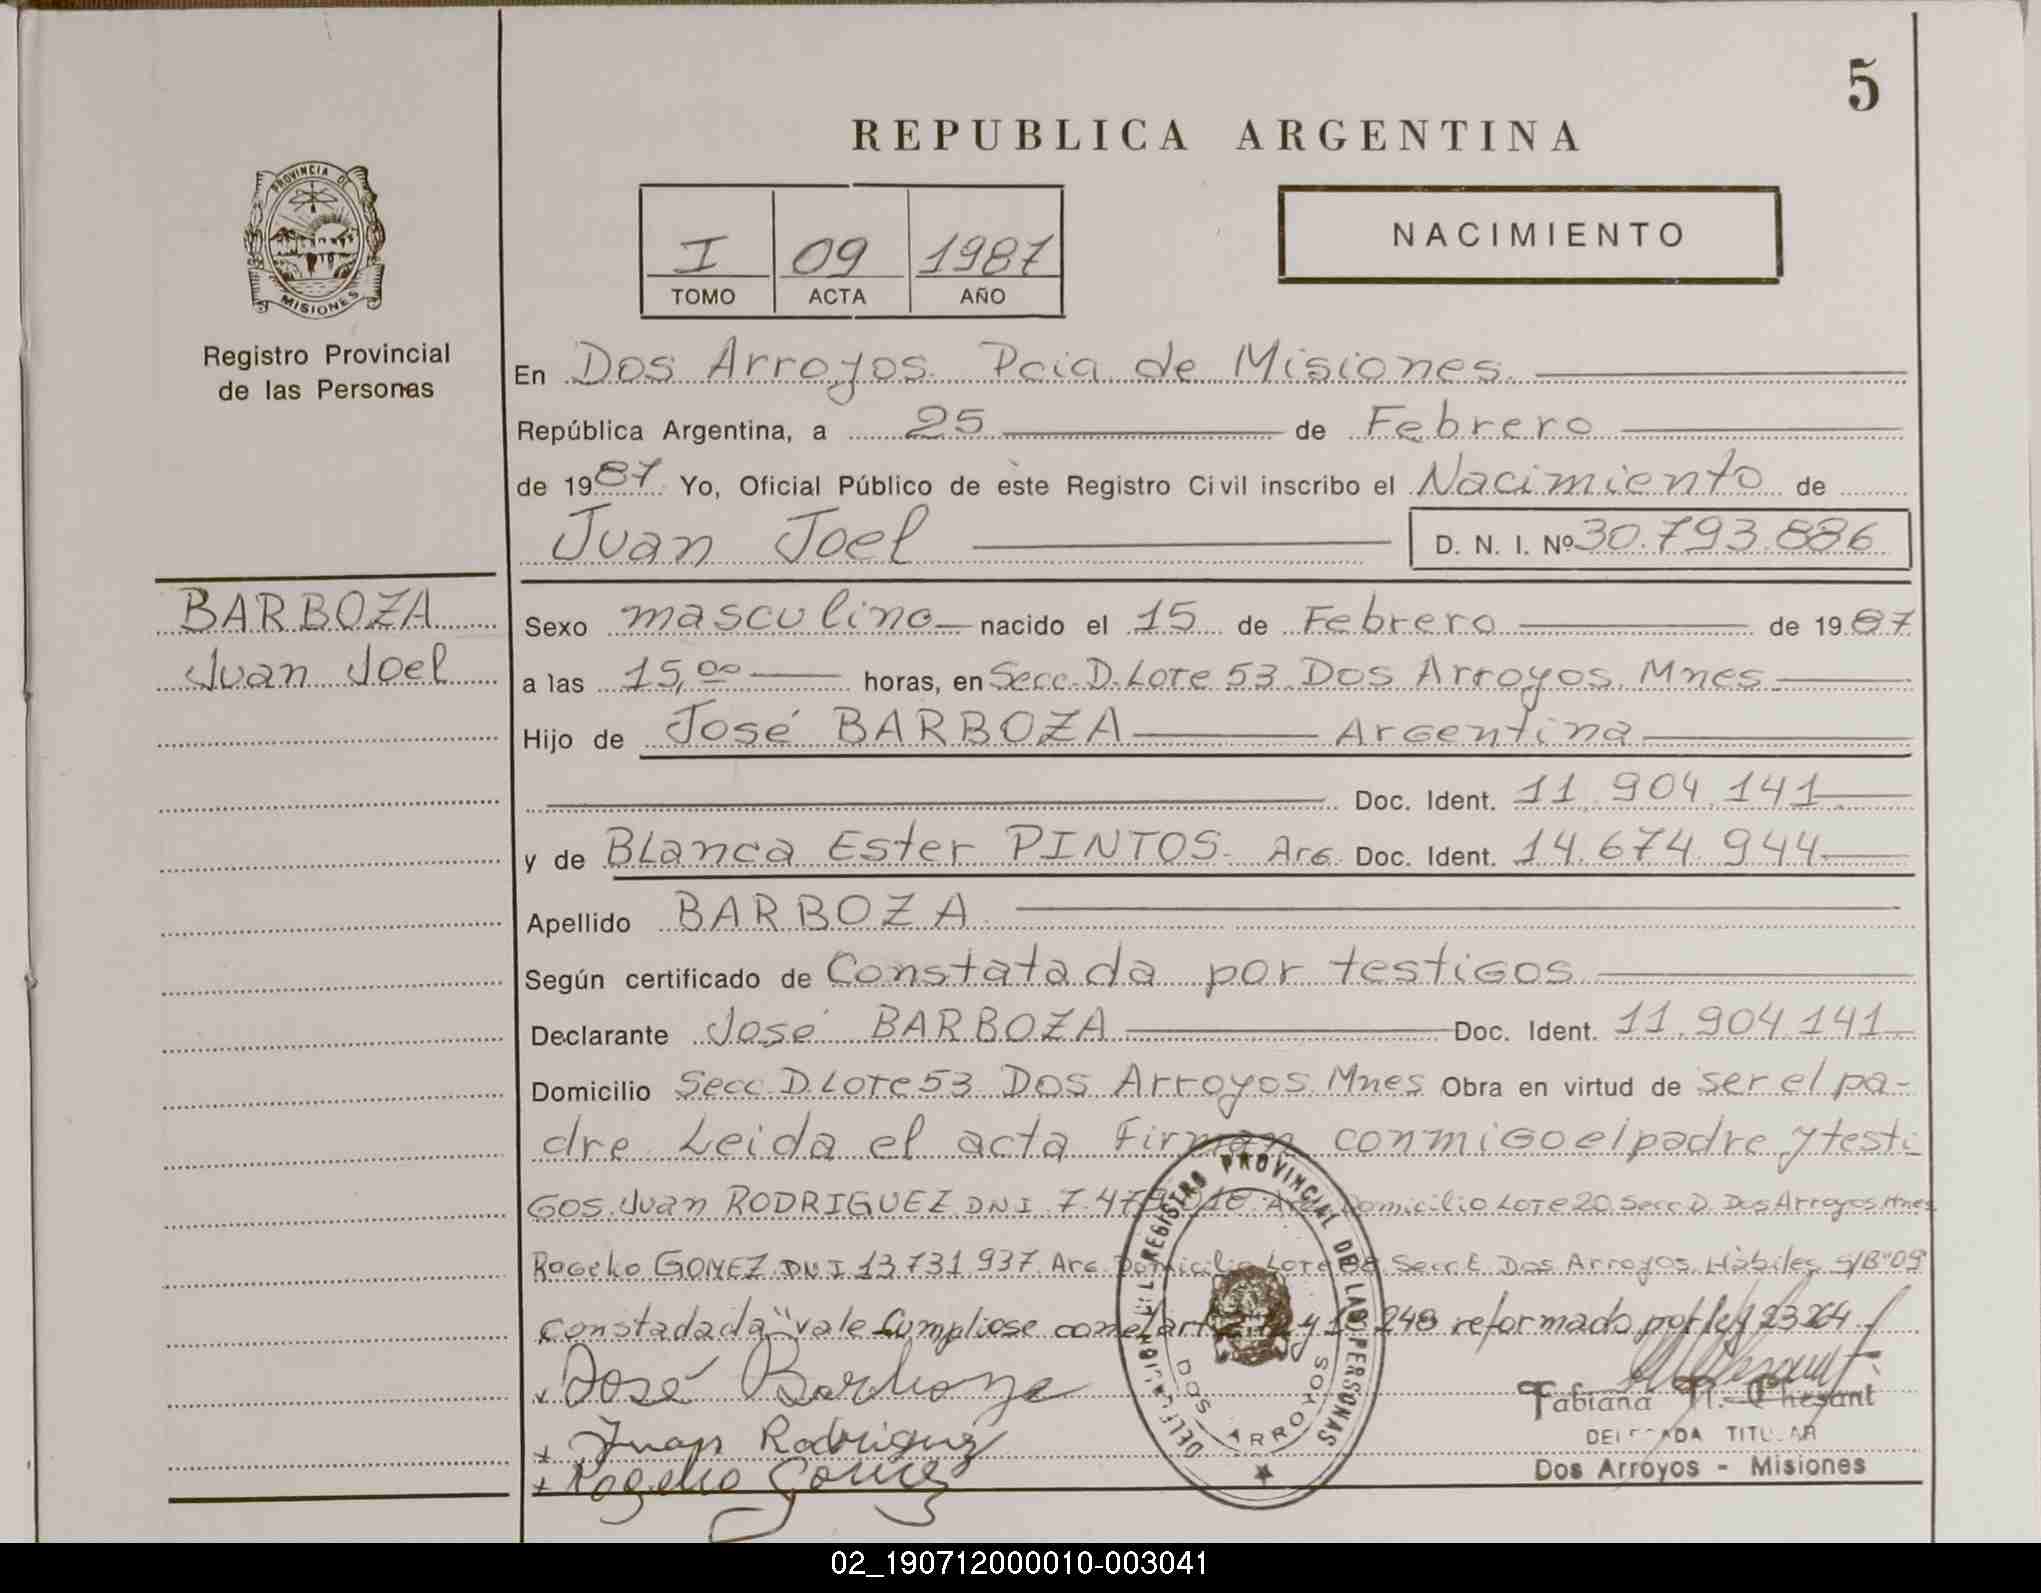 5
REPUBLICA ARGENTINA
PROVINCIA DE
MISIONES
Registro Provincial
de las Personas
I 09 1987
TOMO ACTA AÑO
NACIMIENTO
En Dos Arroyos Pcia de Misiones.
República Argentina, a 25 de Febrero
de 1987 Yo, Oficial Público de este Registro Civil inscribo el Nacimiento de
Juan Joel D. N. I. Nº 30.793.886
BARBOZA
Juan Joel
Sexo masculino nacido el 15 de Febrero de 1987
a las 15,00 horas, en Secc. D. Lote 53 Dos Arroyos. Mnes
Hijo de José BARBOZA Argentina
Doc. Ident. 11.904.141
y de Blanca Ester PINTOS. Arg. Doc. Ident. 14.674.944
Apellido BARBOZA
Según certificado de Constatada por testigos
Declarante José BARBOZA Doc. Ident. 11.904.141
Domicilio Secc. D. Lote 53 Dos Arroyos. Mnes Obra en virtud de ser el pa-
dre Leida el acta Firman conmigo el padre y testi
gos. Juan RODRIGUEZ DNI 7.47 Domicilio Lote 20 Secc D. Dos Arroyos Mnes
Rogelio GOMEZ DNI 13.731.937 Arg. Domicilio Lote Secc E Dos Arroyos. Hàbiles S/B "09
constadada" vale Cumpliose con el art 248 reformado por ley 23264
José Barboza
Juan Rodriguez
Rogelio Gomez
REGISTRO PROVINCIAL DE LAS PERSONAS
DOS ARROYOS
Fabiana Chesant
DELEGADA TITULAR
Dos Arroyos - Misiones
02_190712000010-003041